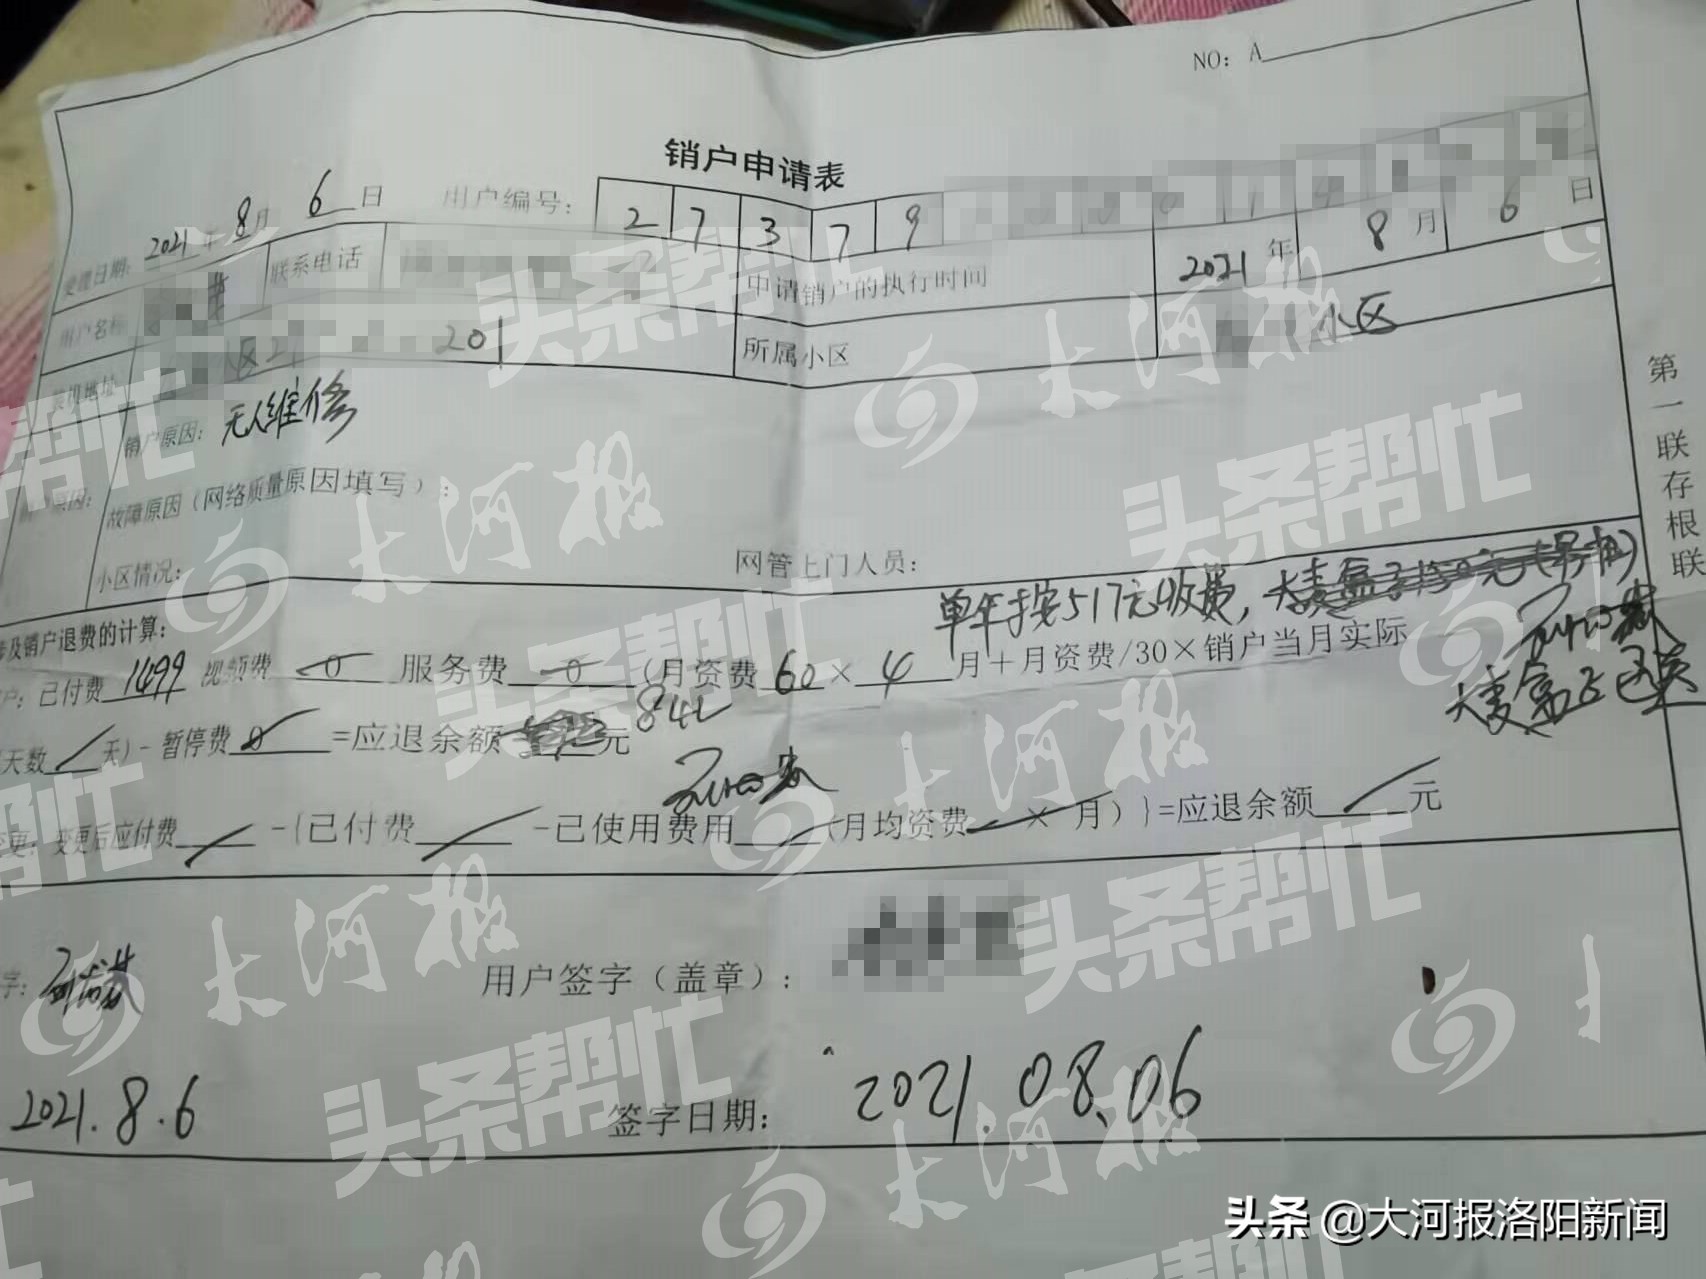 NO: A
销户申请表
受理日期: 2021年8月6日 用户编号: 2 7 3 7 9
用户名称 联系电话 申请销户的执行时间 2021年8月6日
装机地址 201 所属小区 小区
销户原因: 无人维修
户原因:
故障原因(网络质量原因填写):
小区情况: 网管上门人员:
单年按517元收费,
涉及销户退费的计算:
户: 已付费1499 视频费 0 服务费 0 (月资费 60 × 4 月+月资费/30×销户当月实际
大麦盒子已送
天数 天)-暂停费 0 =应退余额 元 842
变更: 变更后应付费 -{已付费 -已使用费用 (月均资费 × 月)}=应退余额 元
字: 用户签字(盖章):
2021.8.6 签字日期: 2021.08.06
第一联存根联
头条帮忙
大河报
头条 @大河报洛阳新闻